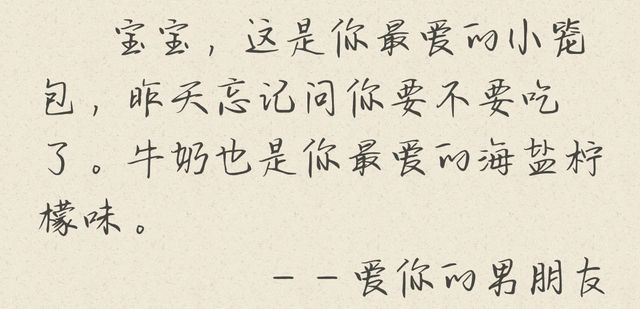 宝宝，这是你最爱的小笼
包，昨天忘记问你要不要吃
了。牛奶也是你最爱的海盐柠
檬味。
——爱你的男朋友